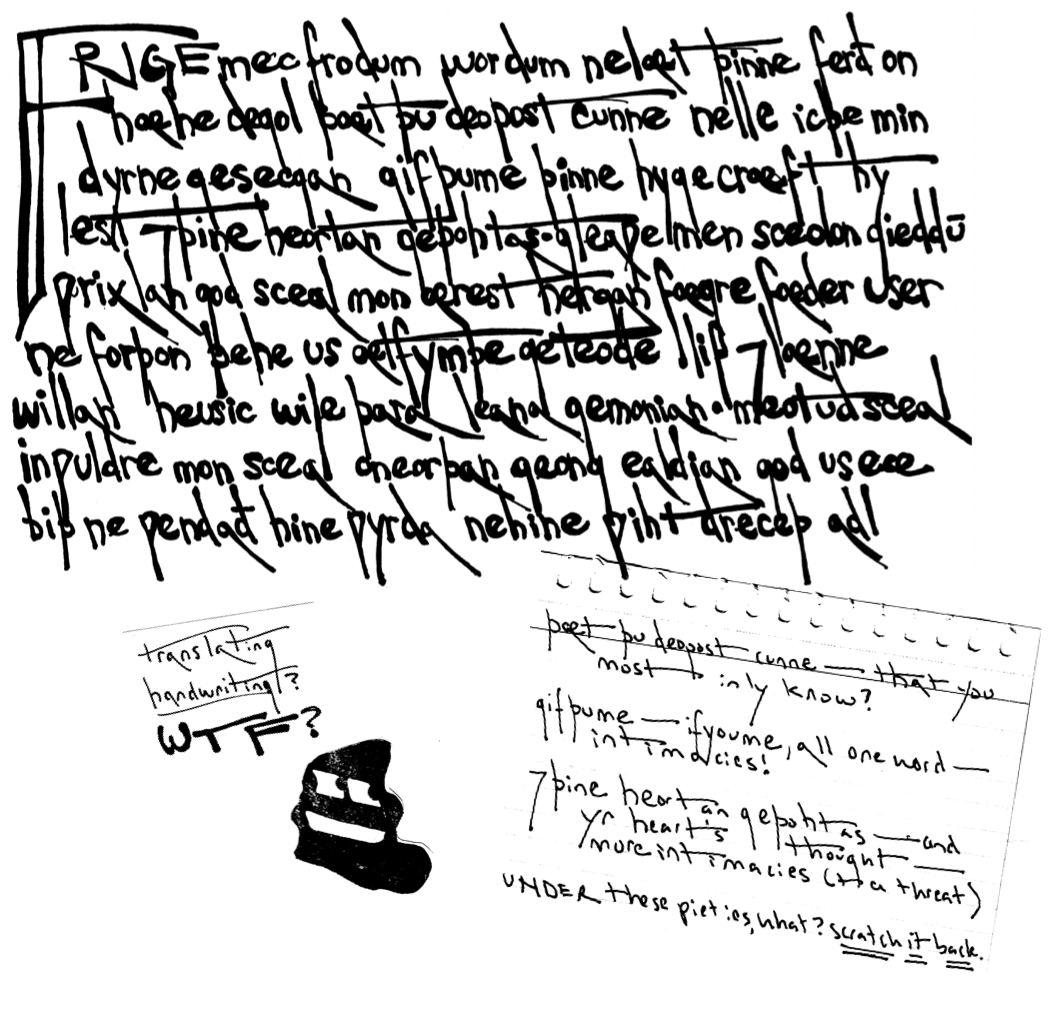 FRIGE mec frodum wordum ne læt þinne ferð on
hælne degol þæt þu deopost cunne nelle ic þe min
dyrne gesecgan gif þu me þinne hygecræft hy
lest ⁊ þine heortan geþohtas · gleaƿe men sceolon gieddū
ƿrixlan god sceal mon ærest hergan fægre fæder user
ne forþon þe he us æt fymþe geteode lif ⁊ lænne
willan he usic wile þara leana gemonian · meotud sceal
in ƿuldre mon sceal on eorþan geong ealdian god us ece
biþ ne ƿendað hine ƿyrda ne hine ƿiht dreceþ adl
translating
handwriting?
WTF?
þæt þu deopost cunne — that you
most inly know?
gif þu me — if you me, all one word —
intimacies!
⁊ þine heortan geþohtas — and
yr heart's thought —
more intimacies (to a threat)
UNDER these pieties, what? scratch it back.